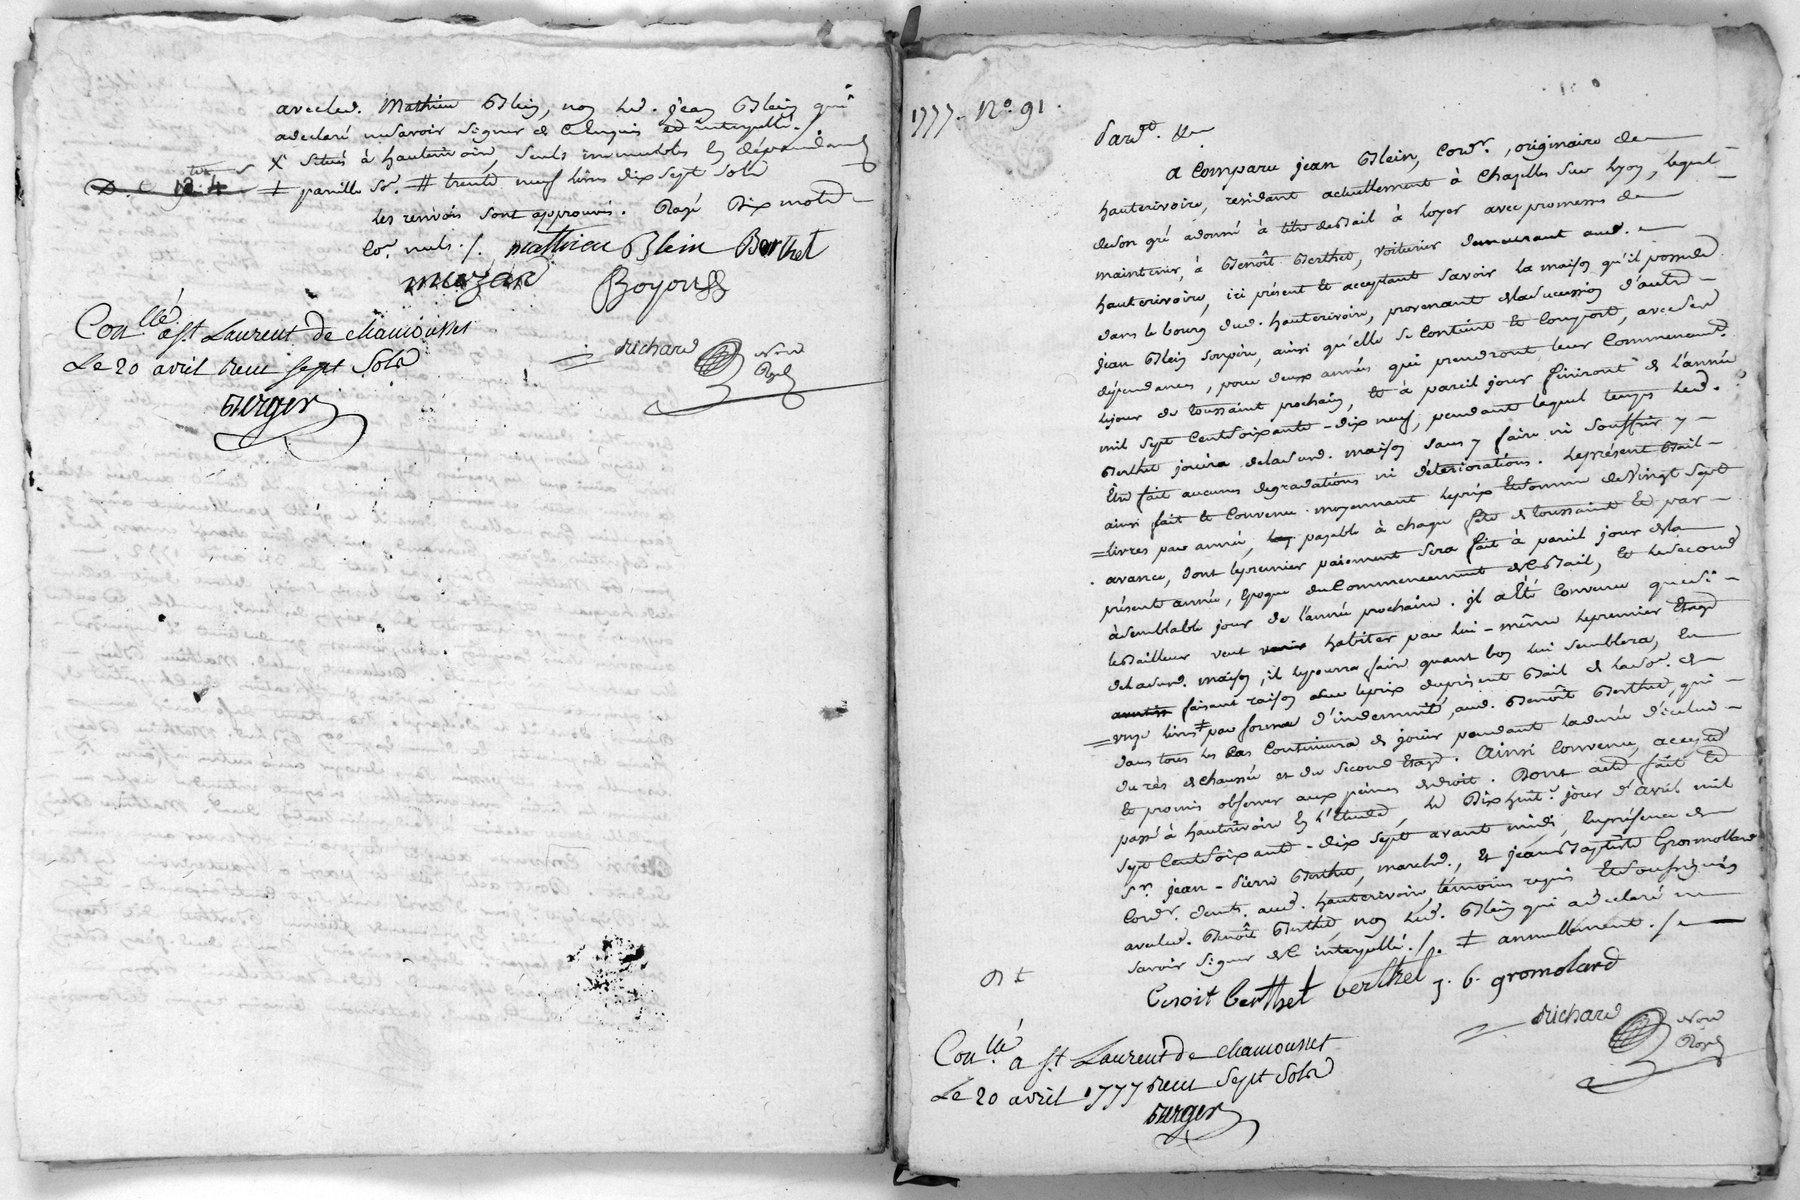 avecled. Mathieu Blein, non led. jean Blein qui
adeclaré nesavoir signer de celenquis et interpellé./.
X situés à hauterivoire, seuls immeubles en dépendants
‡ pareille Se. # trente neuf livres dix sept sols
les renvois sont approuvés. Rayé Dix mots
co.e nuls ./. mathieu Blein Berthet
muzard Boyoud
Con.llé a st Laurent De chamousset
Le 20 avril Reçu sept Sols
Berger
Richard Nore Royal
1777. No. 91.
Pard.t &e
a Comparu jean Blein, Cord.r, originaire de
hauterivoire, residant actuellement à Chazelles sur Lyon, lequel
deson gré adonné à titre debail à loyer avec promesse de
maintenir, à Benoît Berthet, voiturier demeurant aud.
hauterivoire, ici présent et acceptant savoir la maison qu'il possede
dans le bourg dud. hauterivoire, provenant delasuccession d'autre
jean Blein sonpère, ainsi qu'elle se Contient et Comporte, avec ses
dépendances, pour deux années qui prendront leur Commencemt.
lejour de toussaint prochain, et à pareil jour finiront de l'année
mil sept Centsoixante-dix neuf, pendant lequel temps led.
Berthet jouira delasusd. maison sans y faire ni souffrir y
Être fait aucunes degradations ni déteriorations. Leprésent Bail
ainsi fait et Convenu moyennant leprix etsomme deVingt sept
livres par année, payable à chaque fête de toussaint et par
avance, dont lepremier paiement sera fait à pareil jour dela
présente année, Epoque duCommencement deceBail, et lesecond
àsemblable jour de l'année prochaine. il aété Convenu que si
lebailleur veut venir habiter par lui-même lepremier Etage
deladite. maison, il lepourra faire quant bon lui semblera, en
faisant raison sur leprix duprésent Bail de lasoe. de
onze livres ‡ par forme d'indemnité, aud. Benoît Berthet, qui
dans tous les Cas Continuera de jouir pendant ladurée d'icelui
du rès dechaussée et du second Etage. Ainsi Convenu, accepté
et promis observer aux peines dedroit. Dont acte fait et
passé à hauterivoire en l'étude, le Dixhuit.e jour d'avril mil
sept Centsoixante-dix sept avant midi, Enprésence de
Sr. jean-Pierre Berthet, marchd., et jean Baptiste Gromollard
Cord.r demt. aud. hauterivoire témoins requis Etsoussignés
avecled. Benoît Berthet, non led. Blein qui adeclaré ne
savoir signer de ce interpellé./. ‡ annuellement ./.
Benoit Berthet berthet j. b. gromolard
Richard Nore Royal
Con.llé a st Laurent de chamousset
Le 20 avril 1777 Reçu Sept Sols
Berger